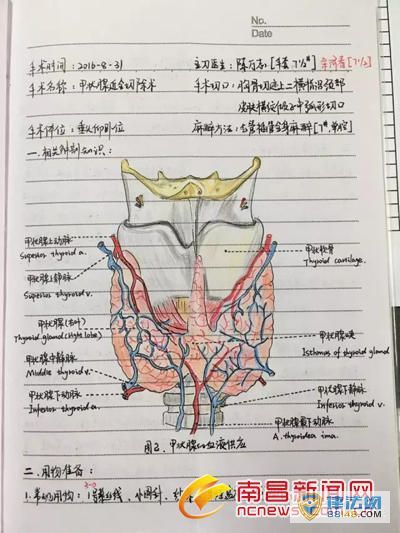 No.
Date
手术时间：2016-8-31 主刀医生：陈万志[手套7½#]
手术名称：甲状腺近全切除术 手术切口：胸骨切迹上二横指沿颈部
皮肤横纹做正中弧形切口
手术体位：垂头仰卧位 麻醉方法：
一.相关解剖知识：
甲状腺上动脉
Superior thyroid a.
甲状软骨
Thyroid cartilage.
甲状腺上静脉
Superior thyroid v.
甲状腺(右叶)
Thyroid gland (Right lobe)
甲状腺峡
Isthmus of thyroid gland
甲状腺中静脉
Middle thyroid v.
甲状腺下动脉
Inferior thyroid a.
甲状腺下静脉
Inferior thyroid v.
甲状腺最下动脉
A. thyroidea ima.
图2.甲状腺的血液供应
二.用物准备：
3-0
1.常规用物：1号丝线、小圆针、
南昌新闻网
ncnews.com.cn
律法网
88148.com